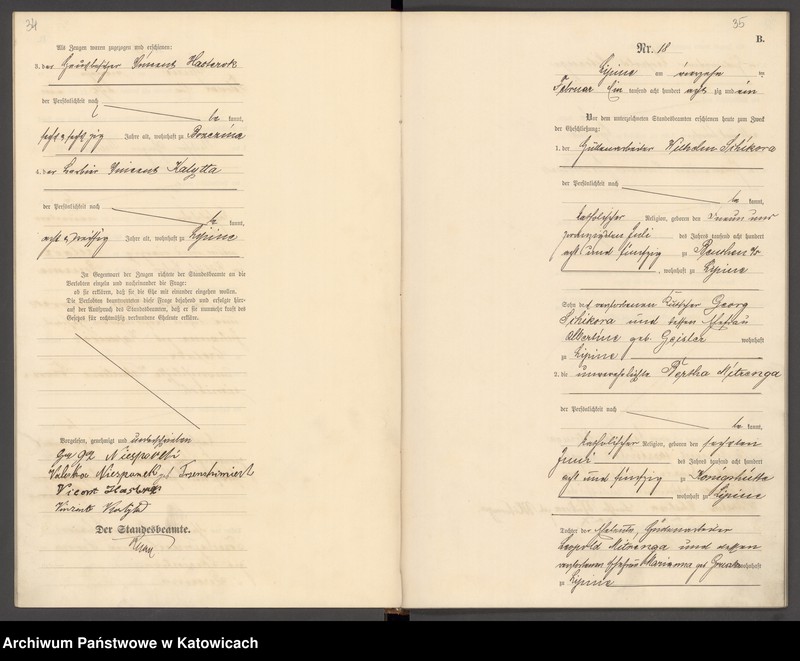 34
Als Zeugen waren zugezogen und erschienen:
3. der Häusler Vincent Hasterok
der Persönlichkeit nach
be kannt,
Jahre alt, wohnhaft zu
4. der Vincent Kalytta
der Persönlichkeit nach
be kannt,
acht u. dreißig Jahre alt, wohnhaft zu Lipine
In Gegenwart der Zeugen richtete der Standesbeamte an die
Verlobten einzeln und nacheinander die Frage:
ob sie erklären, daß sie die Ehe mit einander eingehen wollen.
Die Verlobten beantworteten diese Frage bejahend und erfolgte hier-
auf der Ausspruch des Standesbeamten, daß er sie nunmehr kraft des
Gesetzes für rechtmäßig verbundene Eheleute erkläre.
Vorgelesen, genehmigt und unterschrieben
Niesporek
Valeska
Der Standesbeamte.
35
B.
Nr. 18
Lipine am
Februar Ein tausend acht hundert acht zig und ein
Vor dem unterzeichneten Standesbeamten erschienen heute zum Zweck
der Eheschließung:
1. der Hüttenarbeiter Wilhelm Schikora
der Persönlichkeit nach
be kannt,
katholischer Religion, geboren den neun und
zwanzigsten Juli des Jahres tausend acht hundert
acht und fünfzig zu Beuthen
, wohnhaft zu Lipine
Sohn des verstorbenen Kutscher Georg
Schikora und dessen Ehefrau
Albertine geb. Geisler wohnhaft
zu Lipine
2. die unverehelichte Bertha Mitrenga
der Persönlichkeit nach
be kannt,
katholischer Religion, geboren den sechsten
Juni des Jahres tausend acht hundert
acht und fünfzig zu Königshütte
, wohnhaft zu Lipine
Tochter des Hüttenarbeiter
Leopold Mitrenga und dessen
verstorbenen Ehefrau Marianna geb. wohnhaft
zu Lipine
Archiwum Państwowe w Katowicach